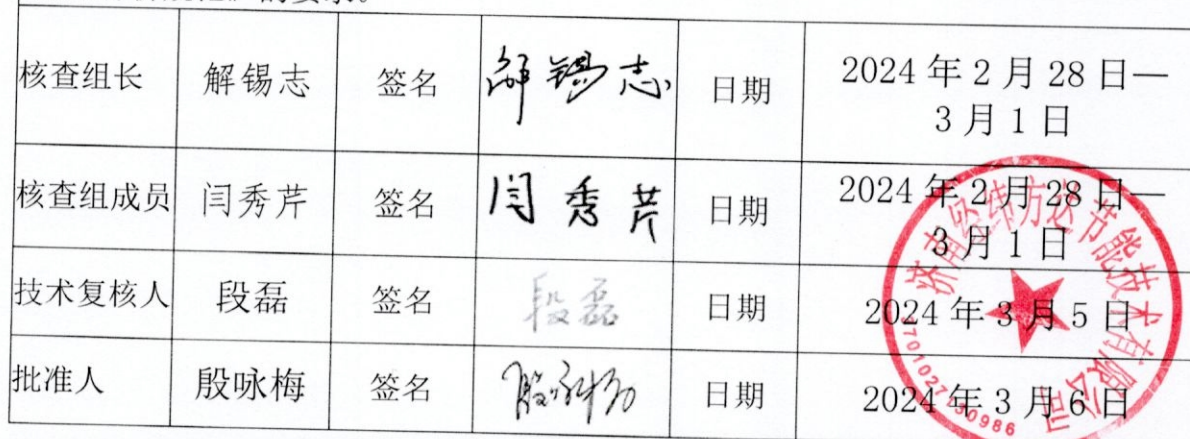 的要求。
核查组长 解锡志 签名 解锡志 日期 2024 年 2 月 28 日—
3 月 1 日
核查组成员 闫秀芹 签名 闫秀芹 日期 2024 年 2 月 28 日—
3 月 1 日
技术复核人 段磊 签名 段磊 日期 2024 年 3 月 5 日
批准人 殷咏梅 签名 殷咏梅 日期 2024 年 3 月 6 日
济南经纬方达节能技术有限公司